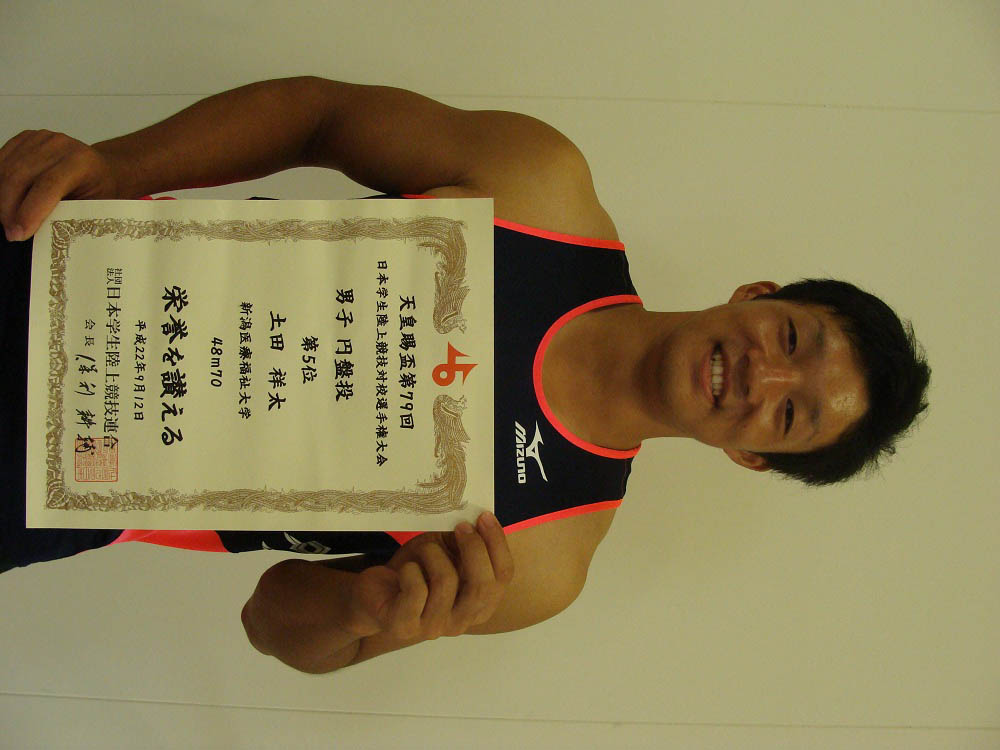 天皇賜盃第79回
日本学生陸上競技対校選手権大会
男子 円盤投
第5位
土田 祥太
新潟医療福祉大学
48m70
栄誉を讃える
平成22年9月12日
社団法人 日本学生陸上競技連合
会長
MIZUNO